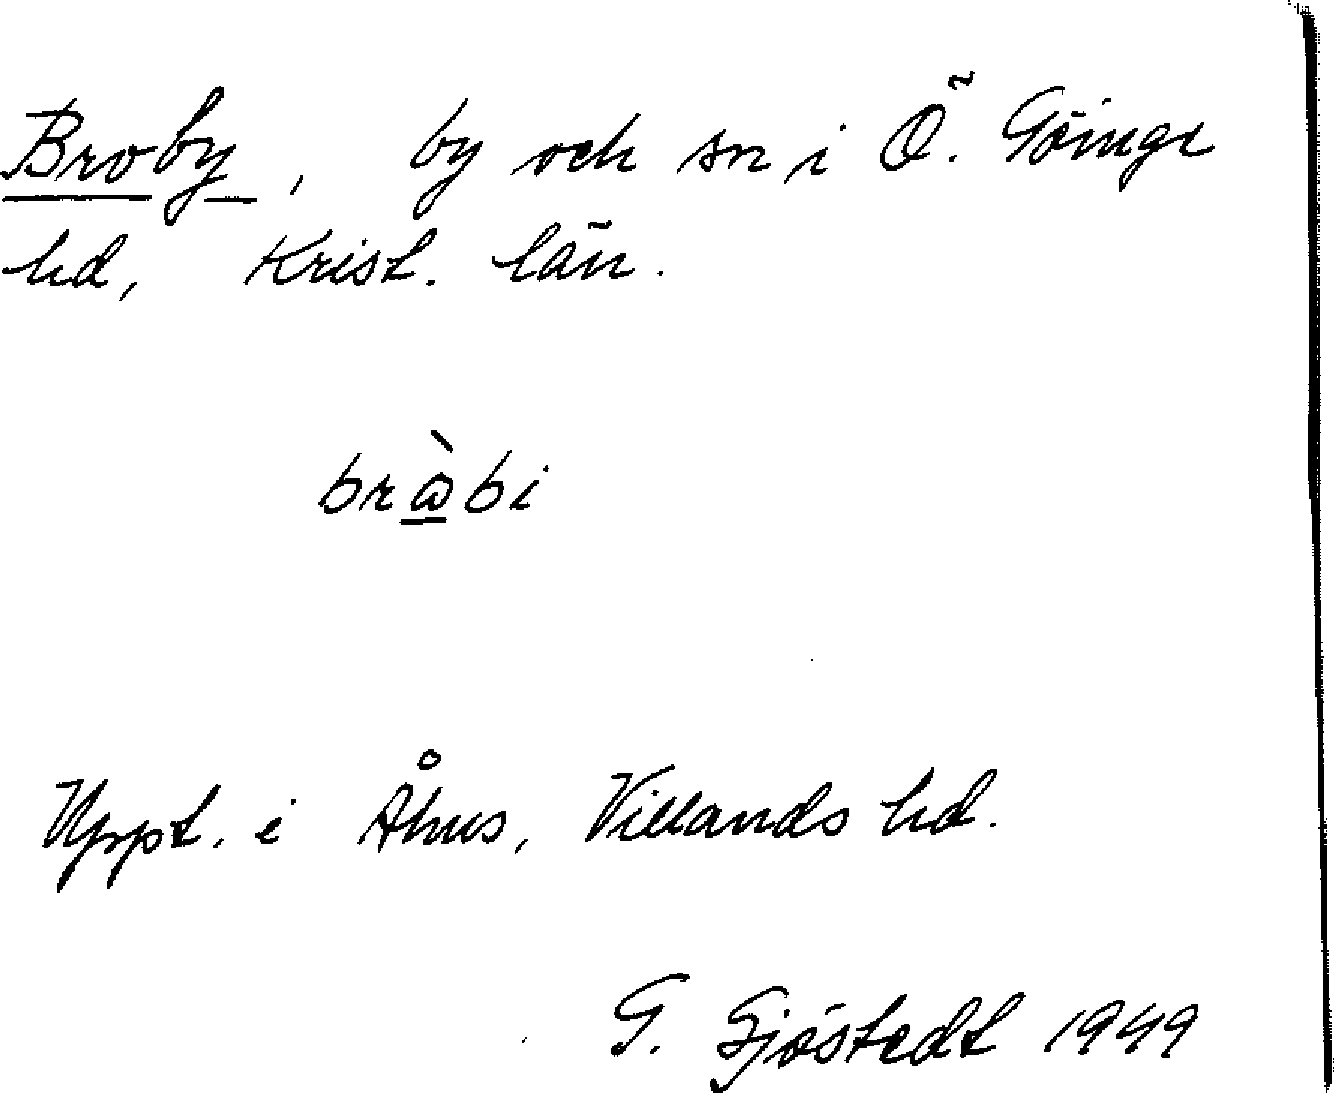 Broby, by och sn i Ö. Göinge
hd, Krist. län.
bròbi
Uppt. i Åhus, Villands hd.
G. Sjöstedt 1949